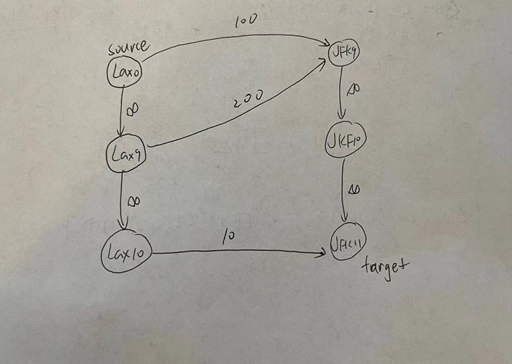 100
source
Lax0
JFK9
∞
∞
200
Lax9
JKF10
∞
∞
Lax10
10
JFK11
target